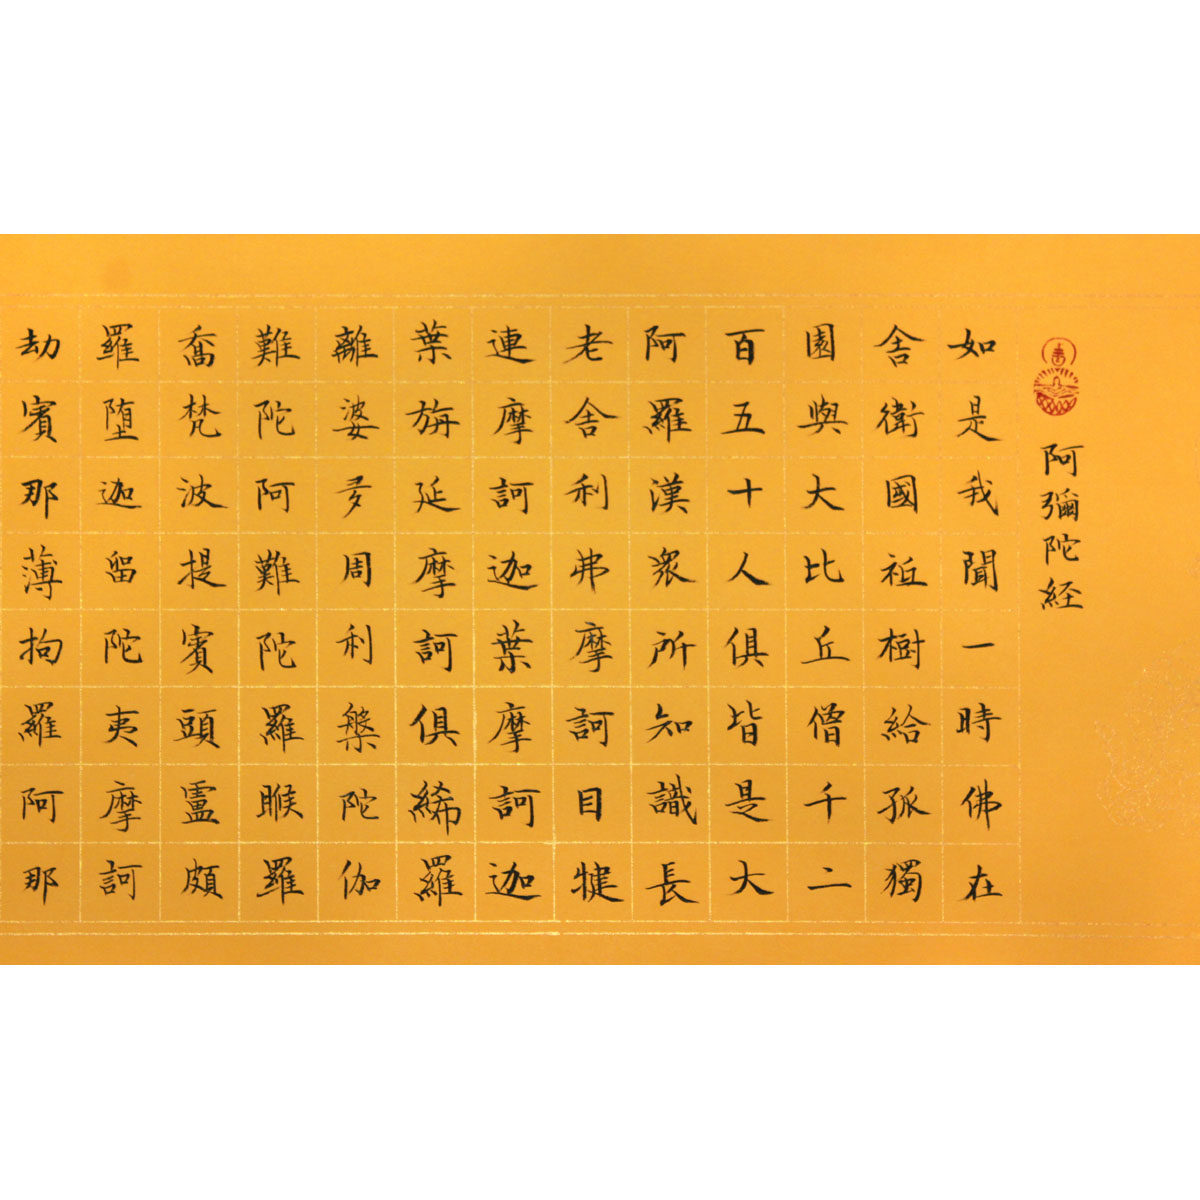 阿彌陀経
如是我聞一時佛在
舎衛國祇樹給孤獨
園與大比丘僧千二
百五十人俱皆是大
阿羅漢衆所知識長
老舎利弗摩訶目犍
連摩訶迦葉摩訶迦
葉旃延摩訶俱絺羅
離婆多周利槃陀伽
難陀阿難陀羅睺羅
喬梵波提賓頭盧頗
羅堕迦留陀夷摩訶
劫賓那薄拘羅阿那